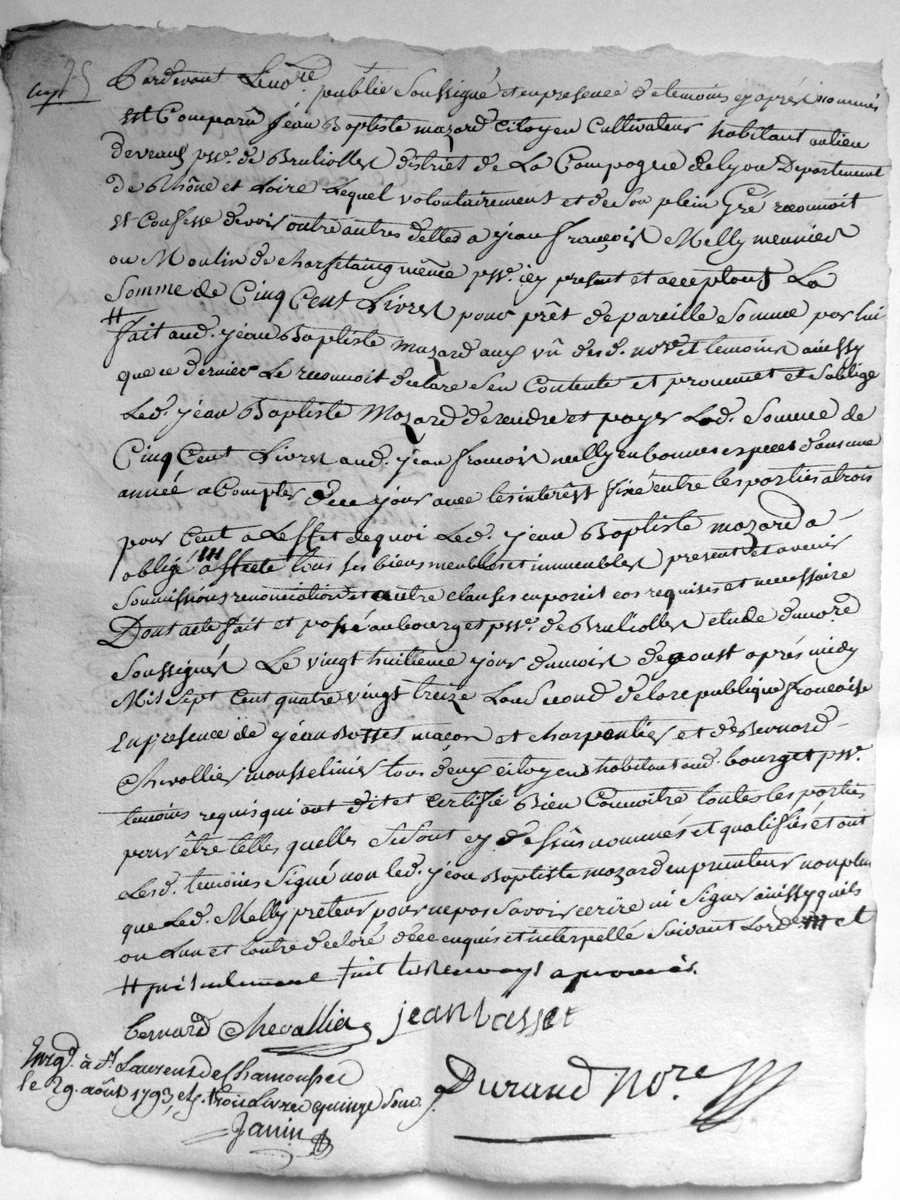 Pardevant Le no.re public Soussigné et en presence de temoins cy après nommés
est Comparu jéan Baptiste mazard Citoyen Cultivateur habitant au lieu
de psse. de Brulliolles district de La Campagne de lyon Departement
de Rhône et Loire Lequel volontairement et de Son plein Gré reconnoit
et Confesse devoir outre autres dettes a jéan françois Melly meunier
au Moulin de même psse. icy présent et acceptant La
Somme de Cinq Cent Livres pour prêt de pareille Somme par lui
# fait aud. jéan Baptiste mazard aux vû desd. no.re et temoins ainssy
que ce dernier Le reconnoit déclare S'en Contente et prommet et S'oblige
Led. jéan Baptiste Mazard de rendre et payer Lad. Somme de
Cinq Cent Livres aud. jéan françois melly en bonnes especes dans une
année a Compter de ce jour avec les interêst fixé entre les parties a trois
pour Cent a Leffet de quoi Led. jéan Baptiste mazard a
obligé affecté tous ses biens meubles et immeubles présent et avenir
Soumissions renonciations et autre clauses en pareil cas requises et necessaire
Dont acte fait et passé au bourg et psse. de Brulliolles etude du no.re
Soussignés Le vingt huitieme jour du mois d'aoust après midy
Mil Sept Cent quatre vingt treize Lan Second de la republique francoise
En présence de jéan Basset maçon et charpentier et de Bernard
Chevallier mousselinier tous deux citoyens habitant aud. bourg et psse.
temoins requis qui ont dit et certifié Bien Connoitre toutes les parties
pour être telles quelles Sisont cy dessûs nommés et qualifiés et ont
Lesd. temoins Signé non led. jéan Baptiste mazard emprunteur non plus
que Led. Melly preteur pour ne pas Savoir ecrire ni Signer ainssy quils
on Lun et Lautre déclaré de ce enquis et interpellé Suivant Lord. et
# présentement fait
bernard Chevallier jean basset
Enrg.é à St. Laurent de Chamousset
le 29. août 1793, trois livres quinze Sous.
Janin
Durand No.re